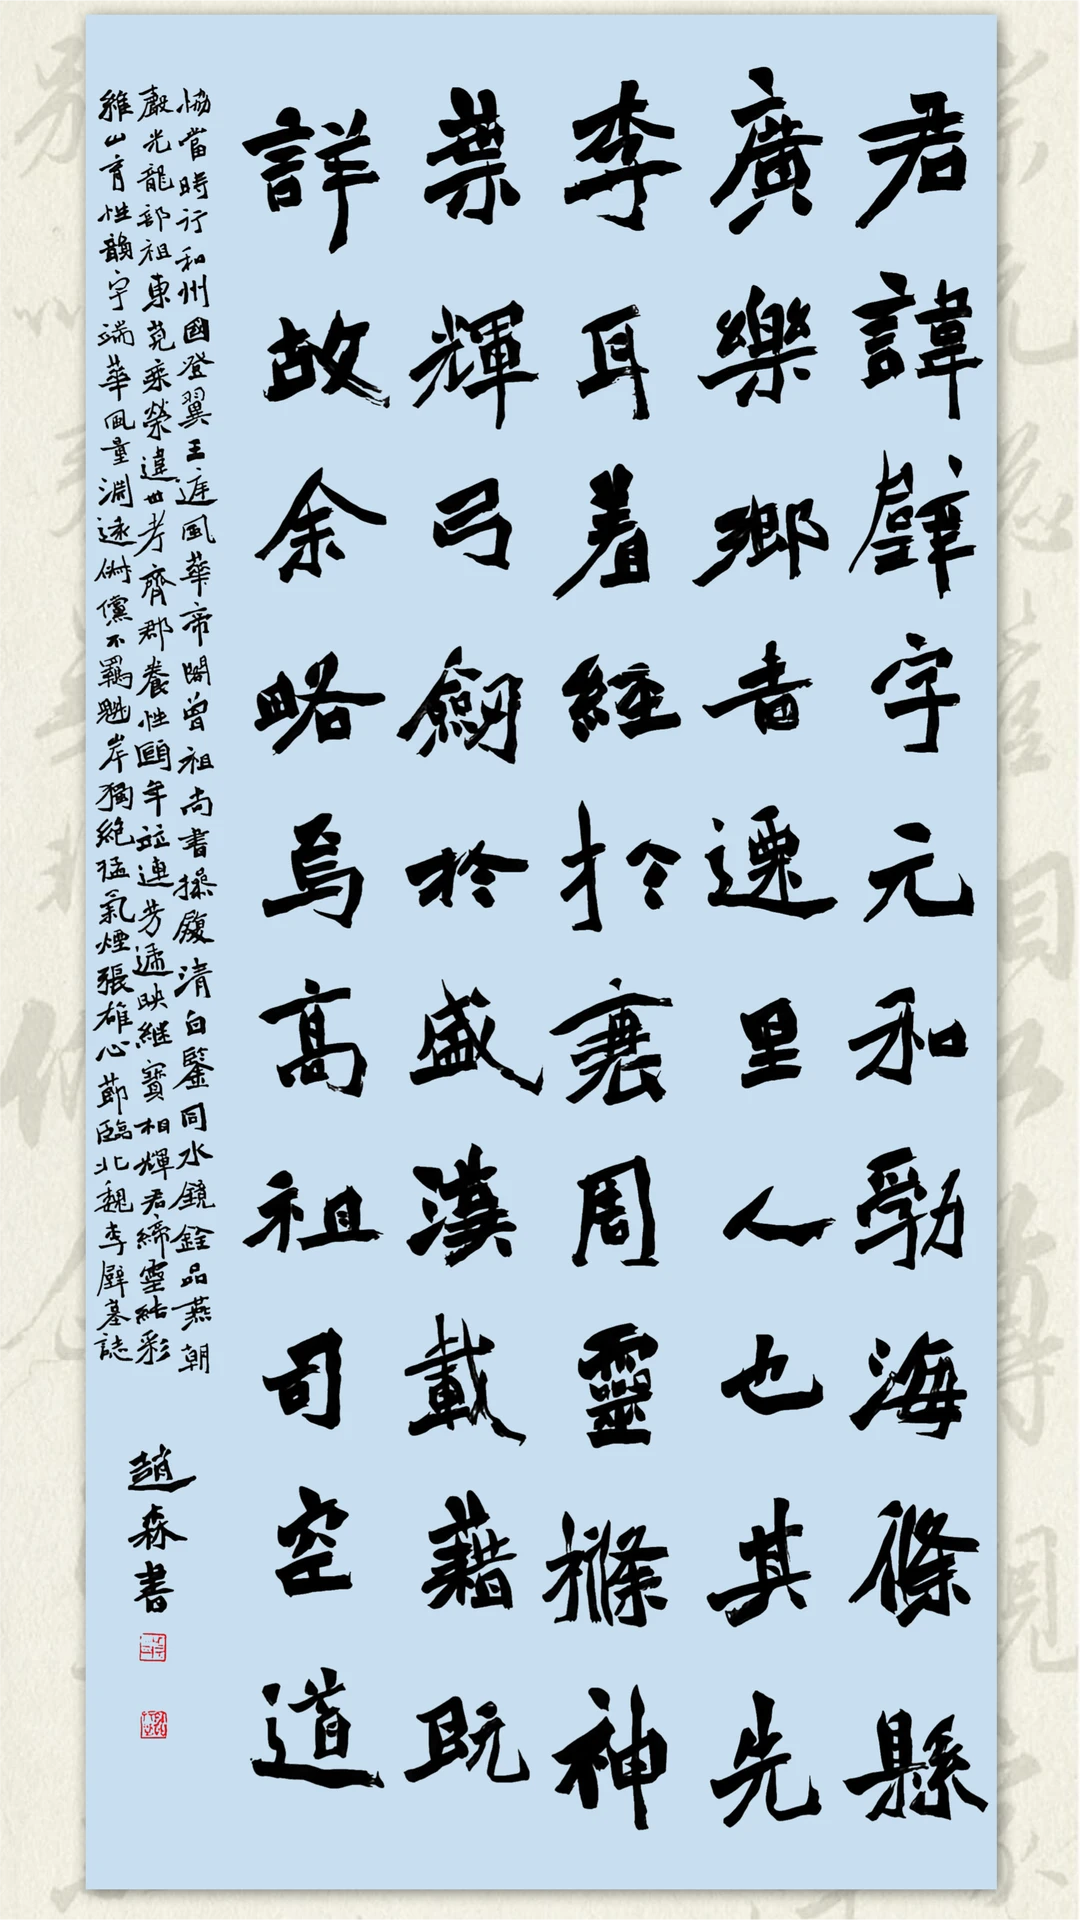 君諱璧字元和勃海條縣
廣樂鄉吉遷里人也其先
李耳著經於衰周靈條神
葉輝弓劍於盛漢載藉既
詳故余略焉高祖司空道
協當時行和州國登翼王庭風華帝閣曾祖尚書操履清白鑒同水鏡銓品燕朝
聲光龍部祖東莞乘榮違世考齊郡養性頤年竝連芳遞映繼寶相輝君締靈結彩
維山育性韻宇端華風量淵遠俶儻不羈魁岸獨絕猛氣煙張雄心 節臨北魏李璧墓誌
趙森書